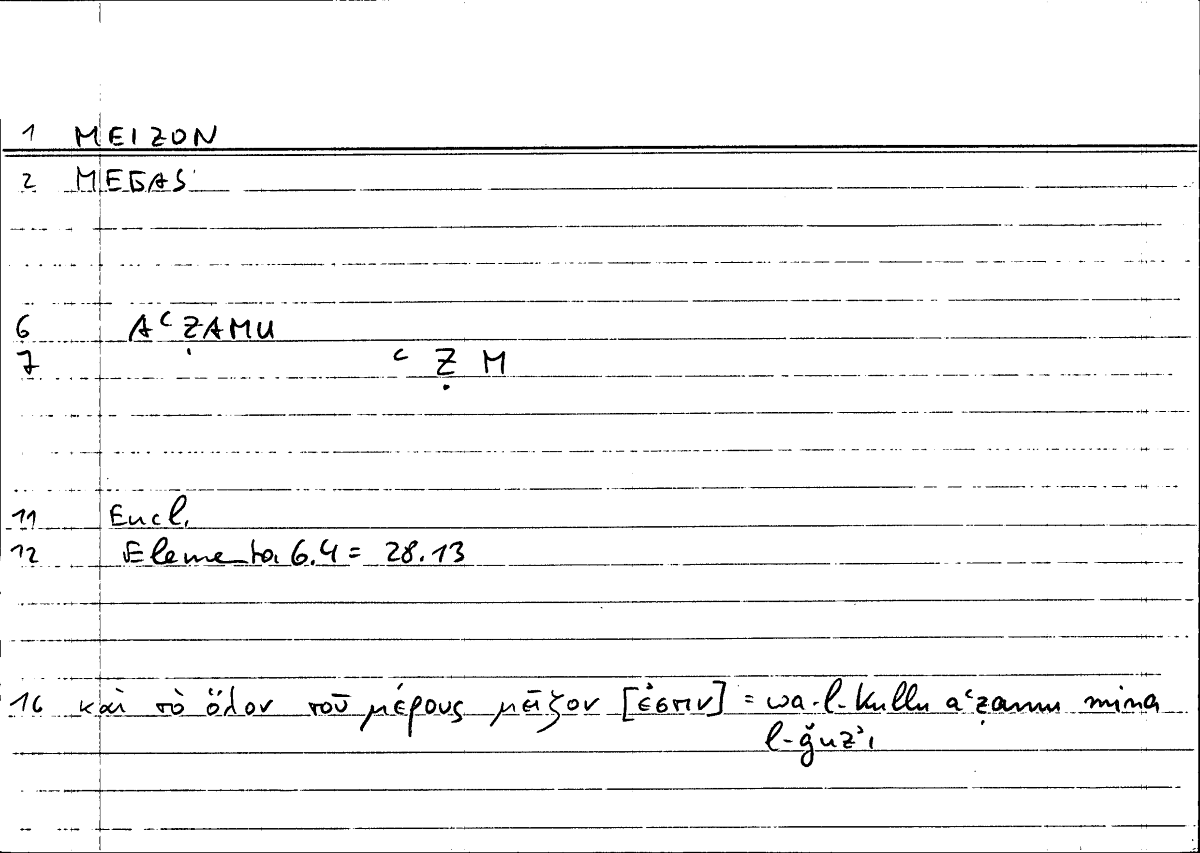 1 MEIZON
2 MEGAS
6 AʿẒAMU
7 ʿ Ẓ M
11 Eucl.
12 Elementa 6.4 = 28.13
16 καὶ τὸ ὅλον τοῦ μέρους μεῖζον [ἐστιν] = wa-l-kullu aʿẓamu mina
l-ǧuzʾi